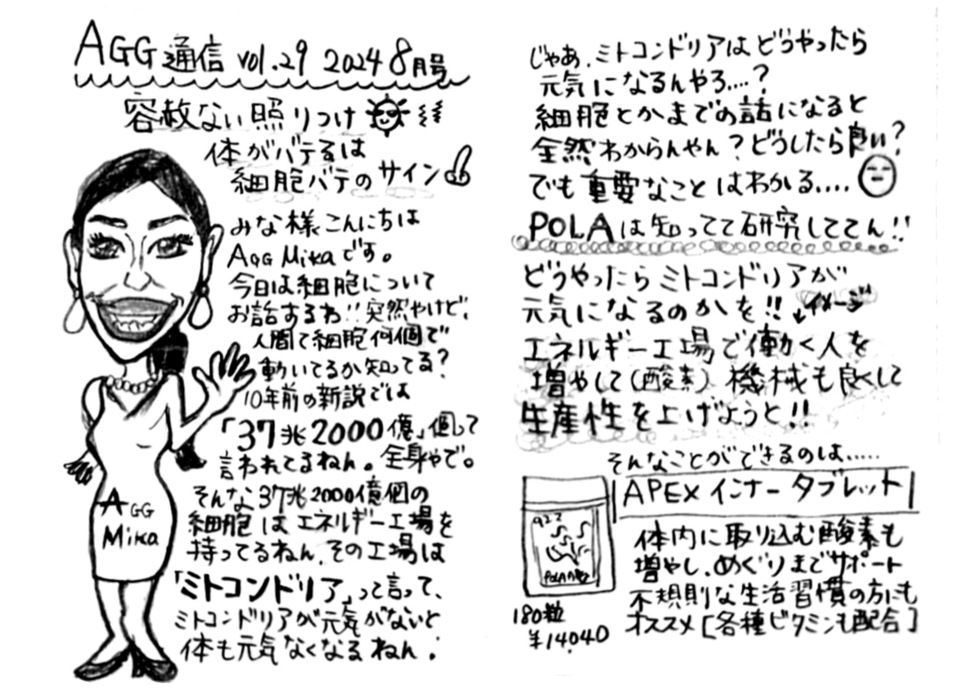 AGG通信 vol.29 2024 8月号
容赦ない照りつけ
体がバテるは
細胞バテのサイン
みな様こんにちは
AGG Mikaです。
今日は細胞について
お話するね!!突然やけど、
人間て細胞何個で
動いてるか知ってる?
10年前の新説では
「37兆2000億」個って
言われてるねん。全身やで。
そんな37兆2000億個の
細胞はエネルギー工場を
持ってるねん.その工場は
「ミトコンドリア」って言って、
ミトコンドリアが元気がないと
体も元気なくなるねん!
AGG
Mika
じゃあ、ミトコンドリアはどうやったら
元気になるんやろ....?
細胞とかまでの話になると
全然わからんやん?どうしたら良い?
でも重要なことはわかる....
POLAは知ってて研究しててん!!
どうやったらミトコンドリアが
元気になるのかを!!
イメージ
エネルギー工場で働く人を
増やして(酸素)機械も良くして
生産性を上げようと!!
そんなことができるのは.....
APEXインナータブレット
体内に取り込む酸素も
増やし、めぐりまでサポート
不規則な生活習慣の方にも
オススメ[各種ビタミンも配合]
180粒
¥14,040